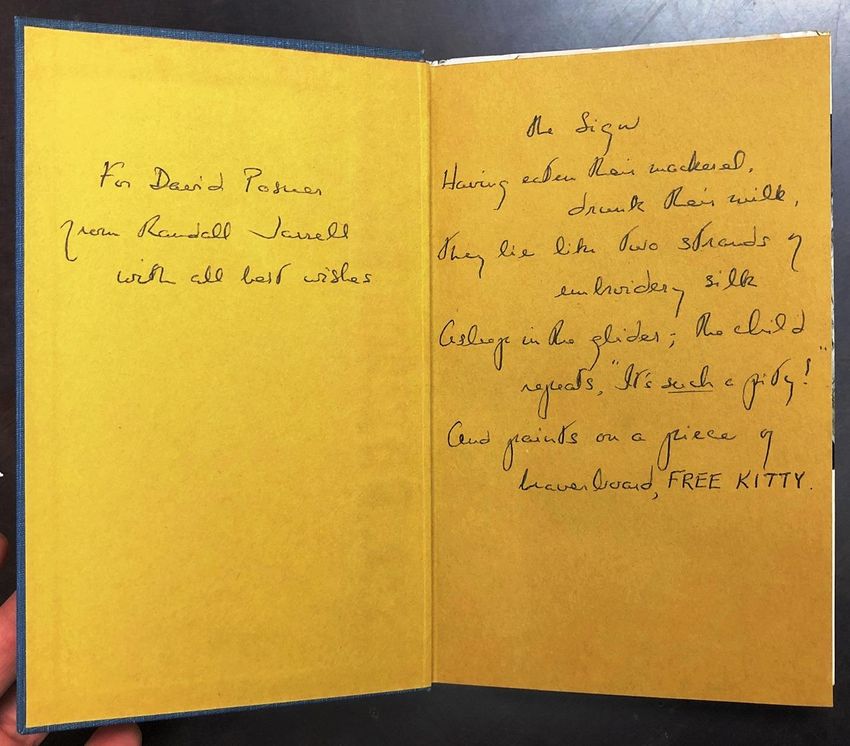 For David Posner
from Randall Jarrell
with all best wishes
The Sign
Having eaten their mackerel,
drunk their milk,
They lie like two strands of
embroidery silk
Asleep in the glider; the child
repeats, "It's such a pity!"
And paints on a piece of
beaverboard, FREE KITTY.